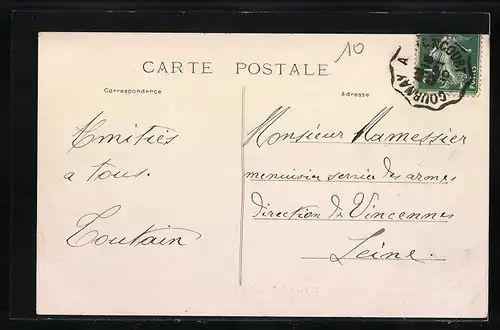 10
CARTE POSTALE
Correspondance
Adresse
GOURNAY A
Amitiés
a tous.
Toutain
Monsieur Mamessier
menuisier service des armes
direction de Vincennes
Seine.